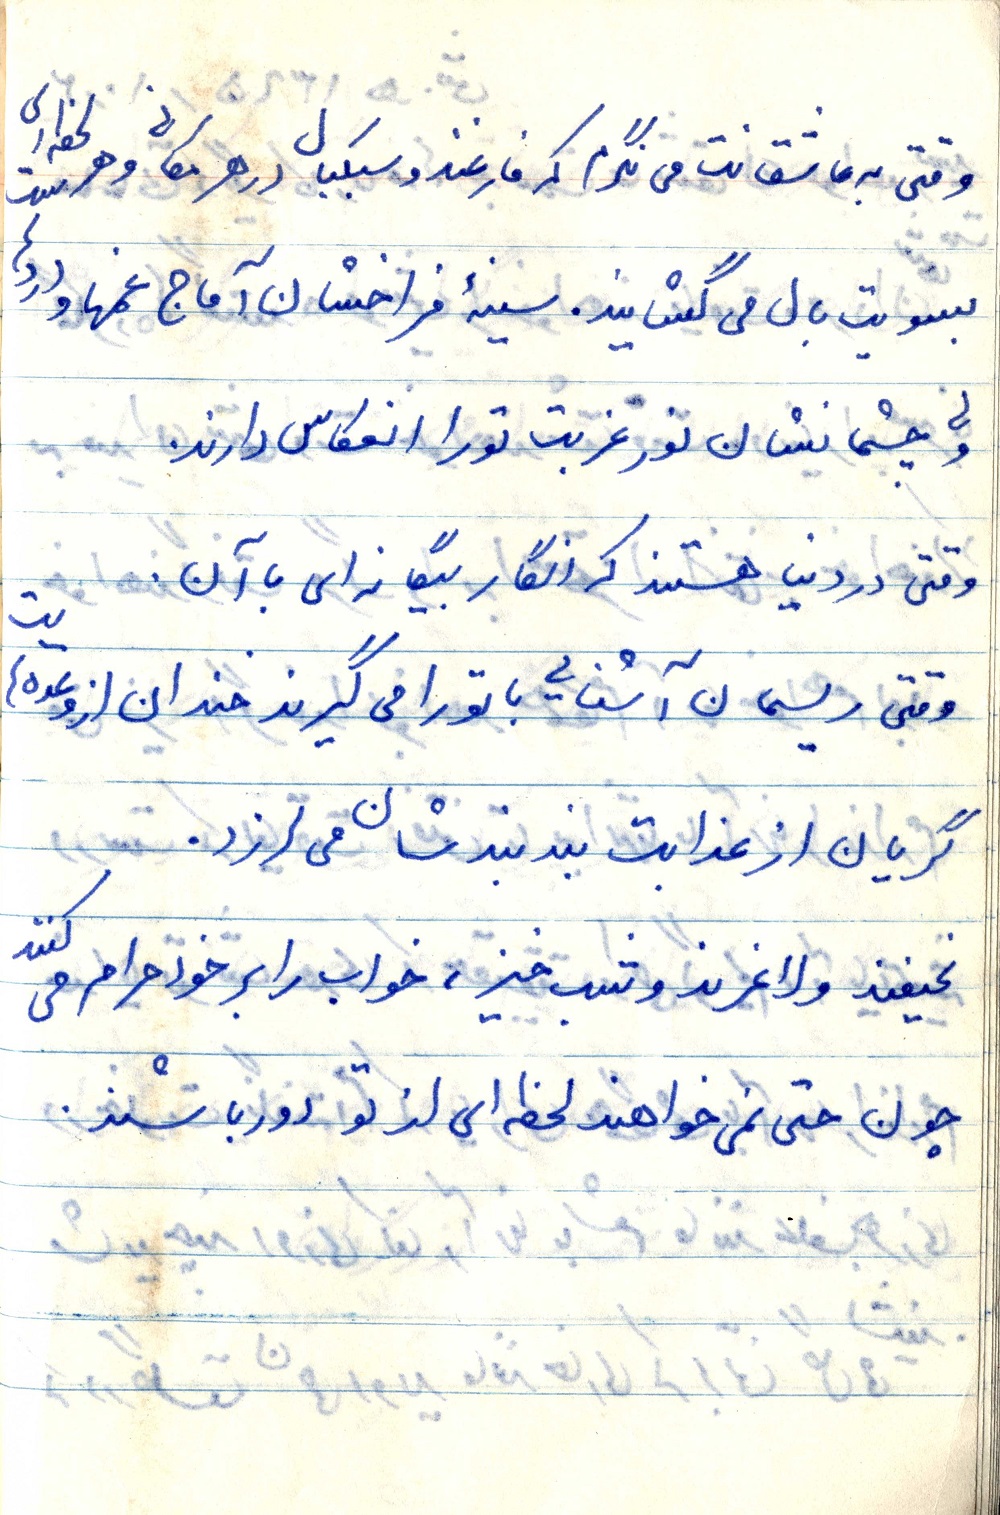 وقتی به عاشقانت می نگرم که فارغند و سبکبال در هر مکانی و هر لحظه ای
بسویت بال می گشایند. سینهٔ فراخشان آماج غمها و دردها
ولی چشمانشان نور غربت تو را انعکاس دارند.
وقتی در دنیا هستند که انگار بیگانه ای با آن.
وقتی ریسمان آشنایی با تو را می گیرند خندان از وعده هایت
گریان از عذابت بند بند شان می لرزد.
نحیفند و لاغرند و شب خیز، خواب را بر خود حرام می کنند
چون حتی نمی خواهند لحظه ای از تو دور باشند.